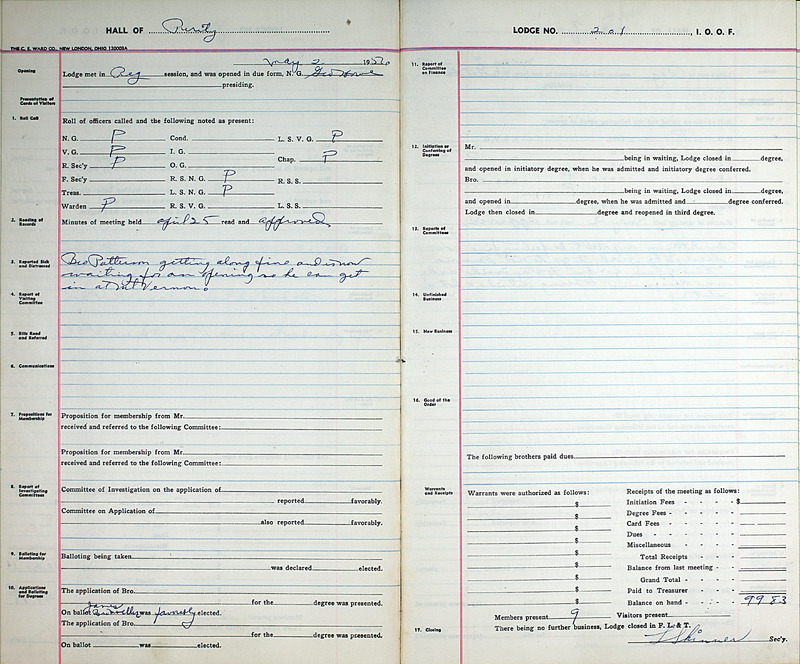 HALL OF Purity
THE C. E. WARD CO., NEW LONDON, OHIO 130008A
May 2 19
Opening
Lodge met in Reg session, and was opened in due form, N. G. Geo
presiding.
Presentation of Cards of Visitors
1. Roll Call
Roll of officers called and the following noted as present:
N. G. P Cond. L. S. V. G. P
V. G. P I. G. Chap. P
R. Sec'y P O. G.
F. Sec'y R. S. N. G. P R. S. S.
Treas. L. S. N. G. P
Warden P R. S. V. G. L. S. S.
2. Reading of Records
Minutes of meeting held April 25 read and approved
3. Reported Sick and Distressed
Bro Patterson getting along fine and is now
waiting for an opening so he can get
in at Mt Vernon.
4. Report of Visiting Committee
5. Bills Read and Referred
6. Communications
7. Propositions for Membership
Proposition for membership from Mr.
received and referred to the following Committee:
Proposition for membership from Mr.
received and referred to the following Committee:
8. Report of Investigating Committees
Committee of Investigation on the application of
reported favorably.
Committee on Application of
also reported favorably.
9. Balloting for Membership
Balloting being taken
was declared elected.
10. Applications and Balloting for Degrees
The application of Bro.
for the degree was presented.
James
On ballot was favorably elected.
The application of Bro.
for the degree was presented.
On ballot was elected.
LODGE NO. 201, I. O. O. F.
11. Report of Committee on Finance
12. Initiation or Conferring of Degrees
Mr.
being in waiting, Lodge closed in degree,
and opened in initiatory degree, when he was admitted and initiatory degree conferred.
Bro.
being in waiting, Lodge closed in degree,
and opened in degree, when he was admitted and degree conferred.
Lodge then closed in degree and reopened in third degree.
13. Reports of Committees
14. Unfinished Business
15. New Business
16. Good of the Order
The following brothers paid dues
Warrants and Receipts
Warrants were authorized as follows: Receipts of the meeting as follows:
$ Initiation Fees - - $
$ Degree Fees - - - -
$ Card Fees - - - -
$ Dues - - - - -
$ Miscellaneous - - -
$ Total Receipts - - -
$ Balance from last meeting -
$ Grand Total - - -
$ Paid to Treasurer - -
$ Balance on hand - - - 99 83
Members present 9 Visitors present
17. Closing
There being no further business, Lodge closed in F. L. & T.
Skinner Sec'y.